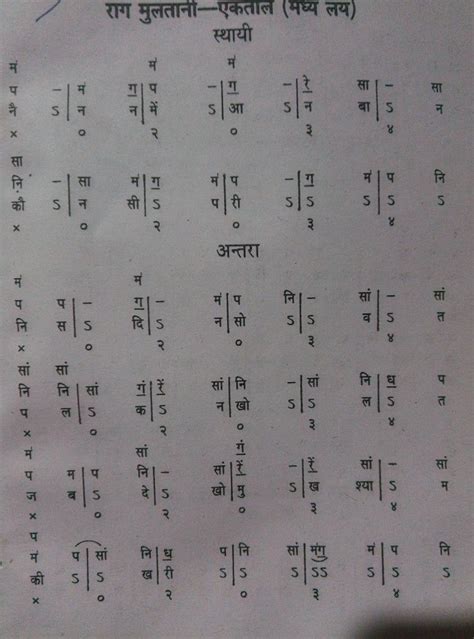 राग मुलतानी—एकताल (मध्य लय)
स्थायी
मं मं मं
प – | मं ग॒ | प – | ग॒ – | रे॒ सा | – सा
नै ऽ | न न | में ऽ | आ ऽ | न बा | ऽ न
× ० २ ० ३ ४
सा
नि़ – | सा मं | ग॒ मं | प – | ग॒ मं | प नि
कौ ऽ | न सी | ऽ प | री ऽ | ऽ ऽ | ऽ ऽ
× ० २ ० ३ ४
अन्तरा
मं मं
प प | – ग॒ | – मं | प नि | – सां | – सां
नि स | ऽ दि | ऽ न | सो ऽ | ऽ व | ऽ त
× ० २ ० ३ ४
सां सां
नि नि | सां गं॒ | रें॒ सां | नि – | सां नि | ध॒ प
प ल | ऽ क | ऽ न | खो ऽ | ऽ ऽ | ल त
× ० २ ० ३ ४
मं सां गं॒
प म | प नि | – सां | रें॒ – | रें॒ सां | – सां
ज ब | ऽ दे | ऽ खो | मु ऽ | ख श्या | ऽ म
× ० २ ० ३ ४
प
मं प | सां नि | ध॒ प | नि सां | मंगु मं | प नि
की ऽ | ऽ ख | री ऽ | ऽ ऽ | ऽऽ ऽ | ऽ ऽ
× ० २ ० ३ ४